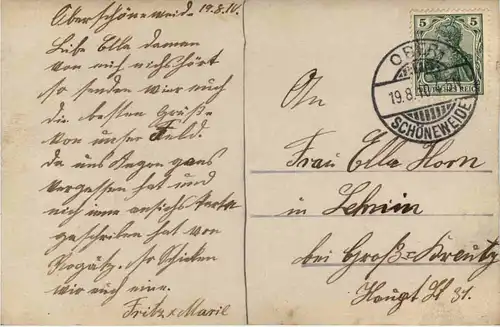 Oberschöneweide. 19.8.10.
Liebe Ella damen
von mich nichs hört
so senden wir euch
die besten Grüße
von unser Feld.
da uns Hagen ganz
vergessen hat und
nich eine ansichs karte
geschriben hat von
Rogätz. So Schicken
wir euch eine.
Fritz u. Marie
5 5
DEUTSCHES REICH
OBER-
19.8.10
SCHÖNEWEIDE
An
Frau Ella Horn
in Lehnin
bei Groß-Kreutz
Haupt St 31.